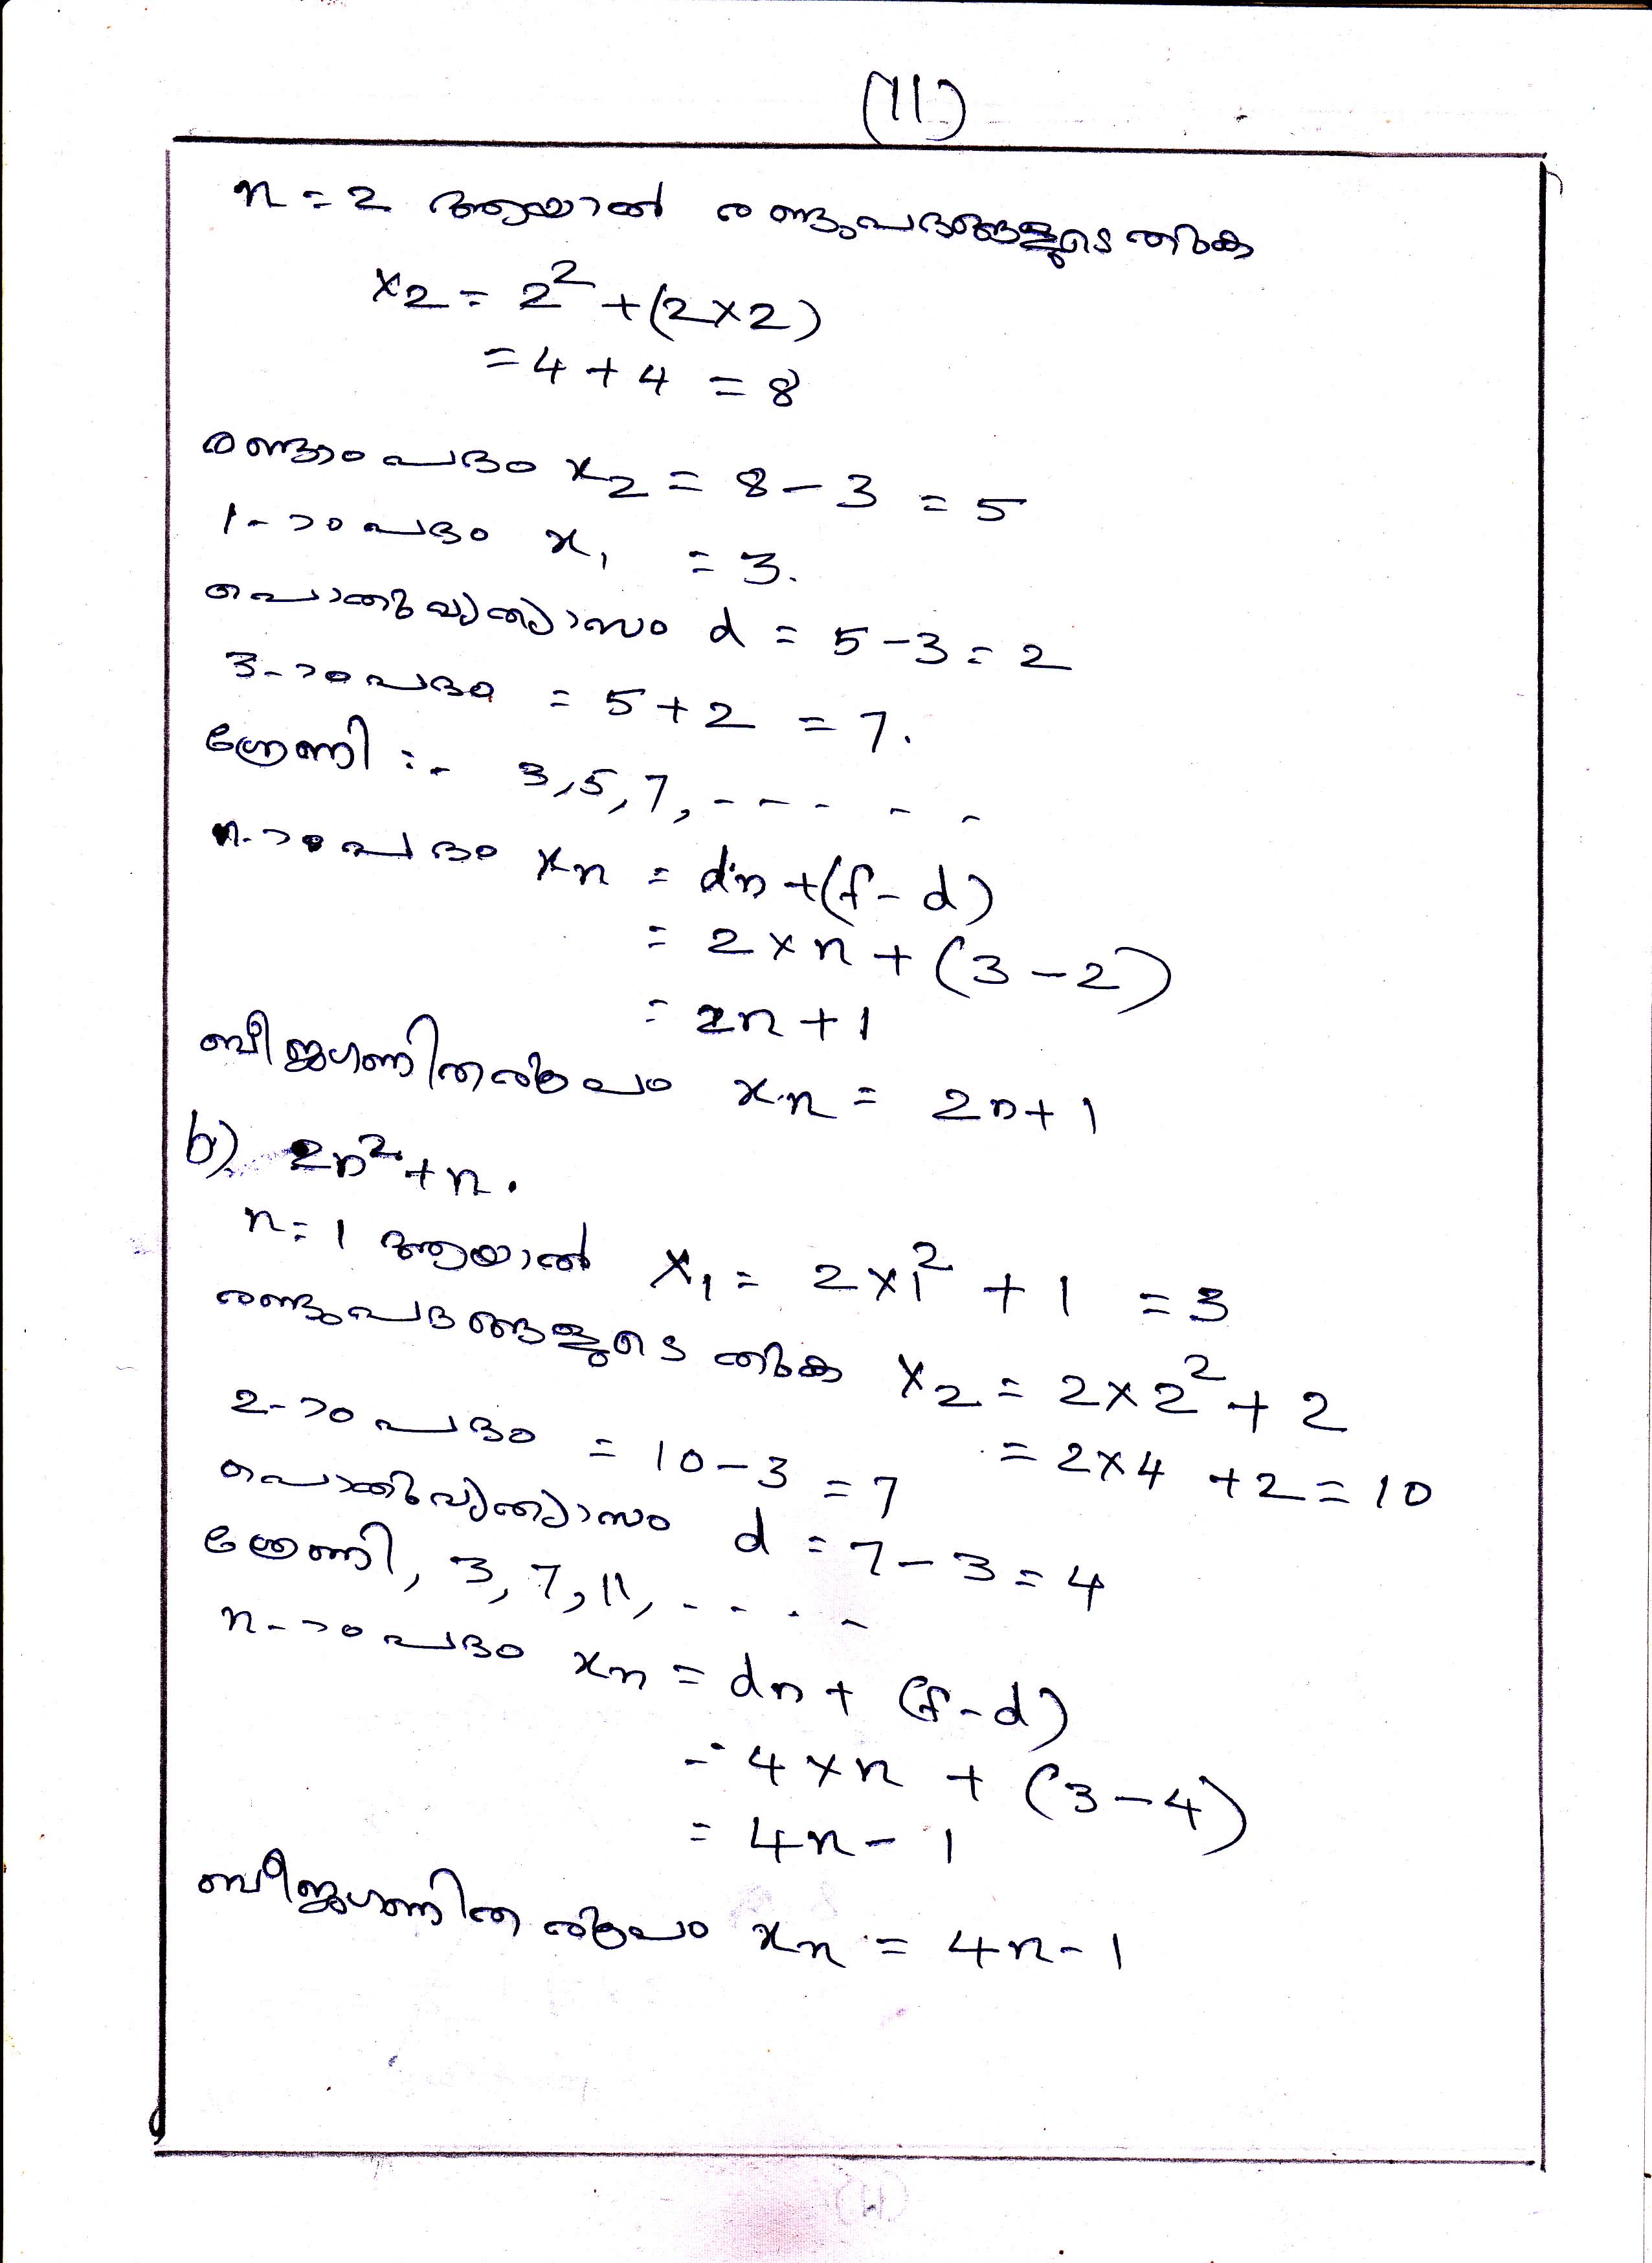 (11)
n = 2 ആയാൽ രണ്ടുപദങ്ങളുടെ തുക
x2 = 2² + (2×2)
= 4 + 4 = 8
രണ്ടാംപദം x2 = 8 - 3 = 5
1-ാംപദം x1 = 3.
പൊതുവ്യത്യാസം d = 5 - 3 = 2
3-ാംപദം = 5 + 2 = 7.
ശ്രേണി :- 3, 5, 7, - - - - -
n-ാംപദം xn = dn + (f - d)
= 2 × n + (3 - 2)
= 2n + 1
ബീജഗണിതരൂപം xn = 2n + 1
b) 2n² + n.
n = 1 ആയാൽ x1 = 2×1² + 1 = 3
രണ്ടുപദങ്ങളുടെ തുക x2 = 2×2² + 2
= 2×4 + 2 = 10
2-ാംപദം = 10 - 3 = 7
പൊതുവ്യത്യാസം d = 7 - 3 = 4
ശ്രേണി, 3, 7, 11, - - - -
n-ാംപദം xn = dn + (f - d)
= 4 × n + (3 - 4)
= 4n - 1
ബീജഗണിതരൂപം xn = 4n - 1